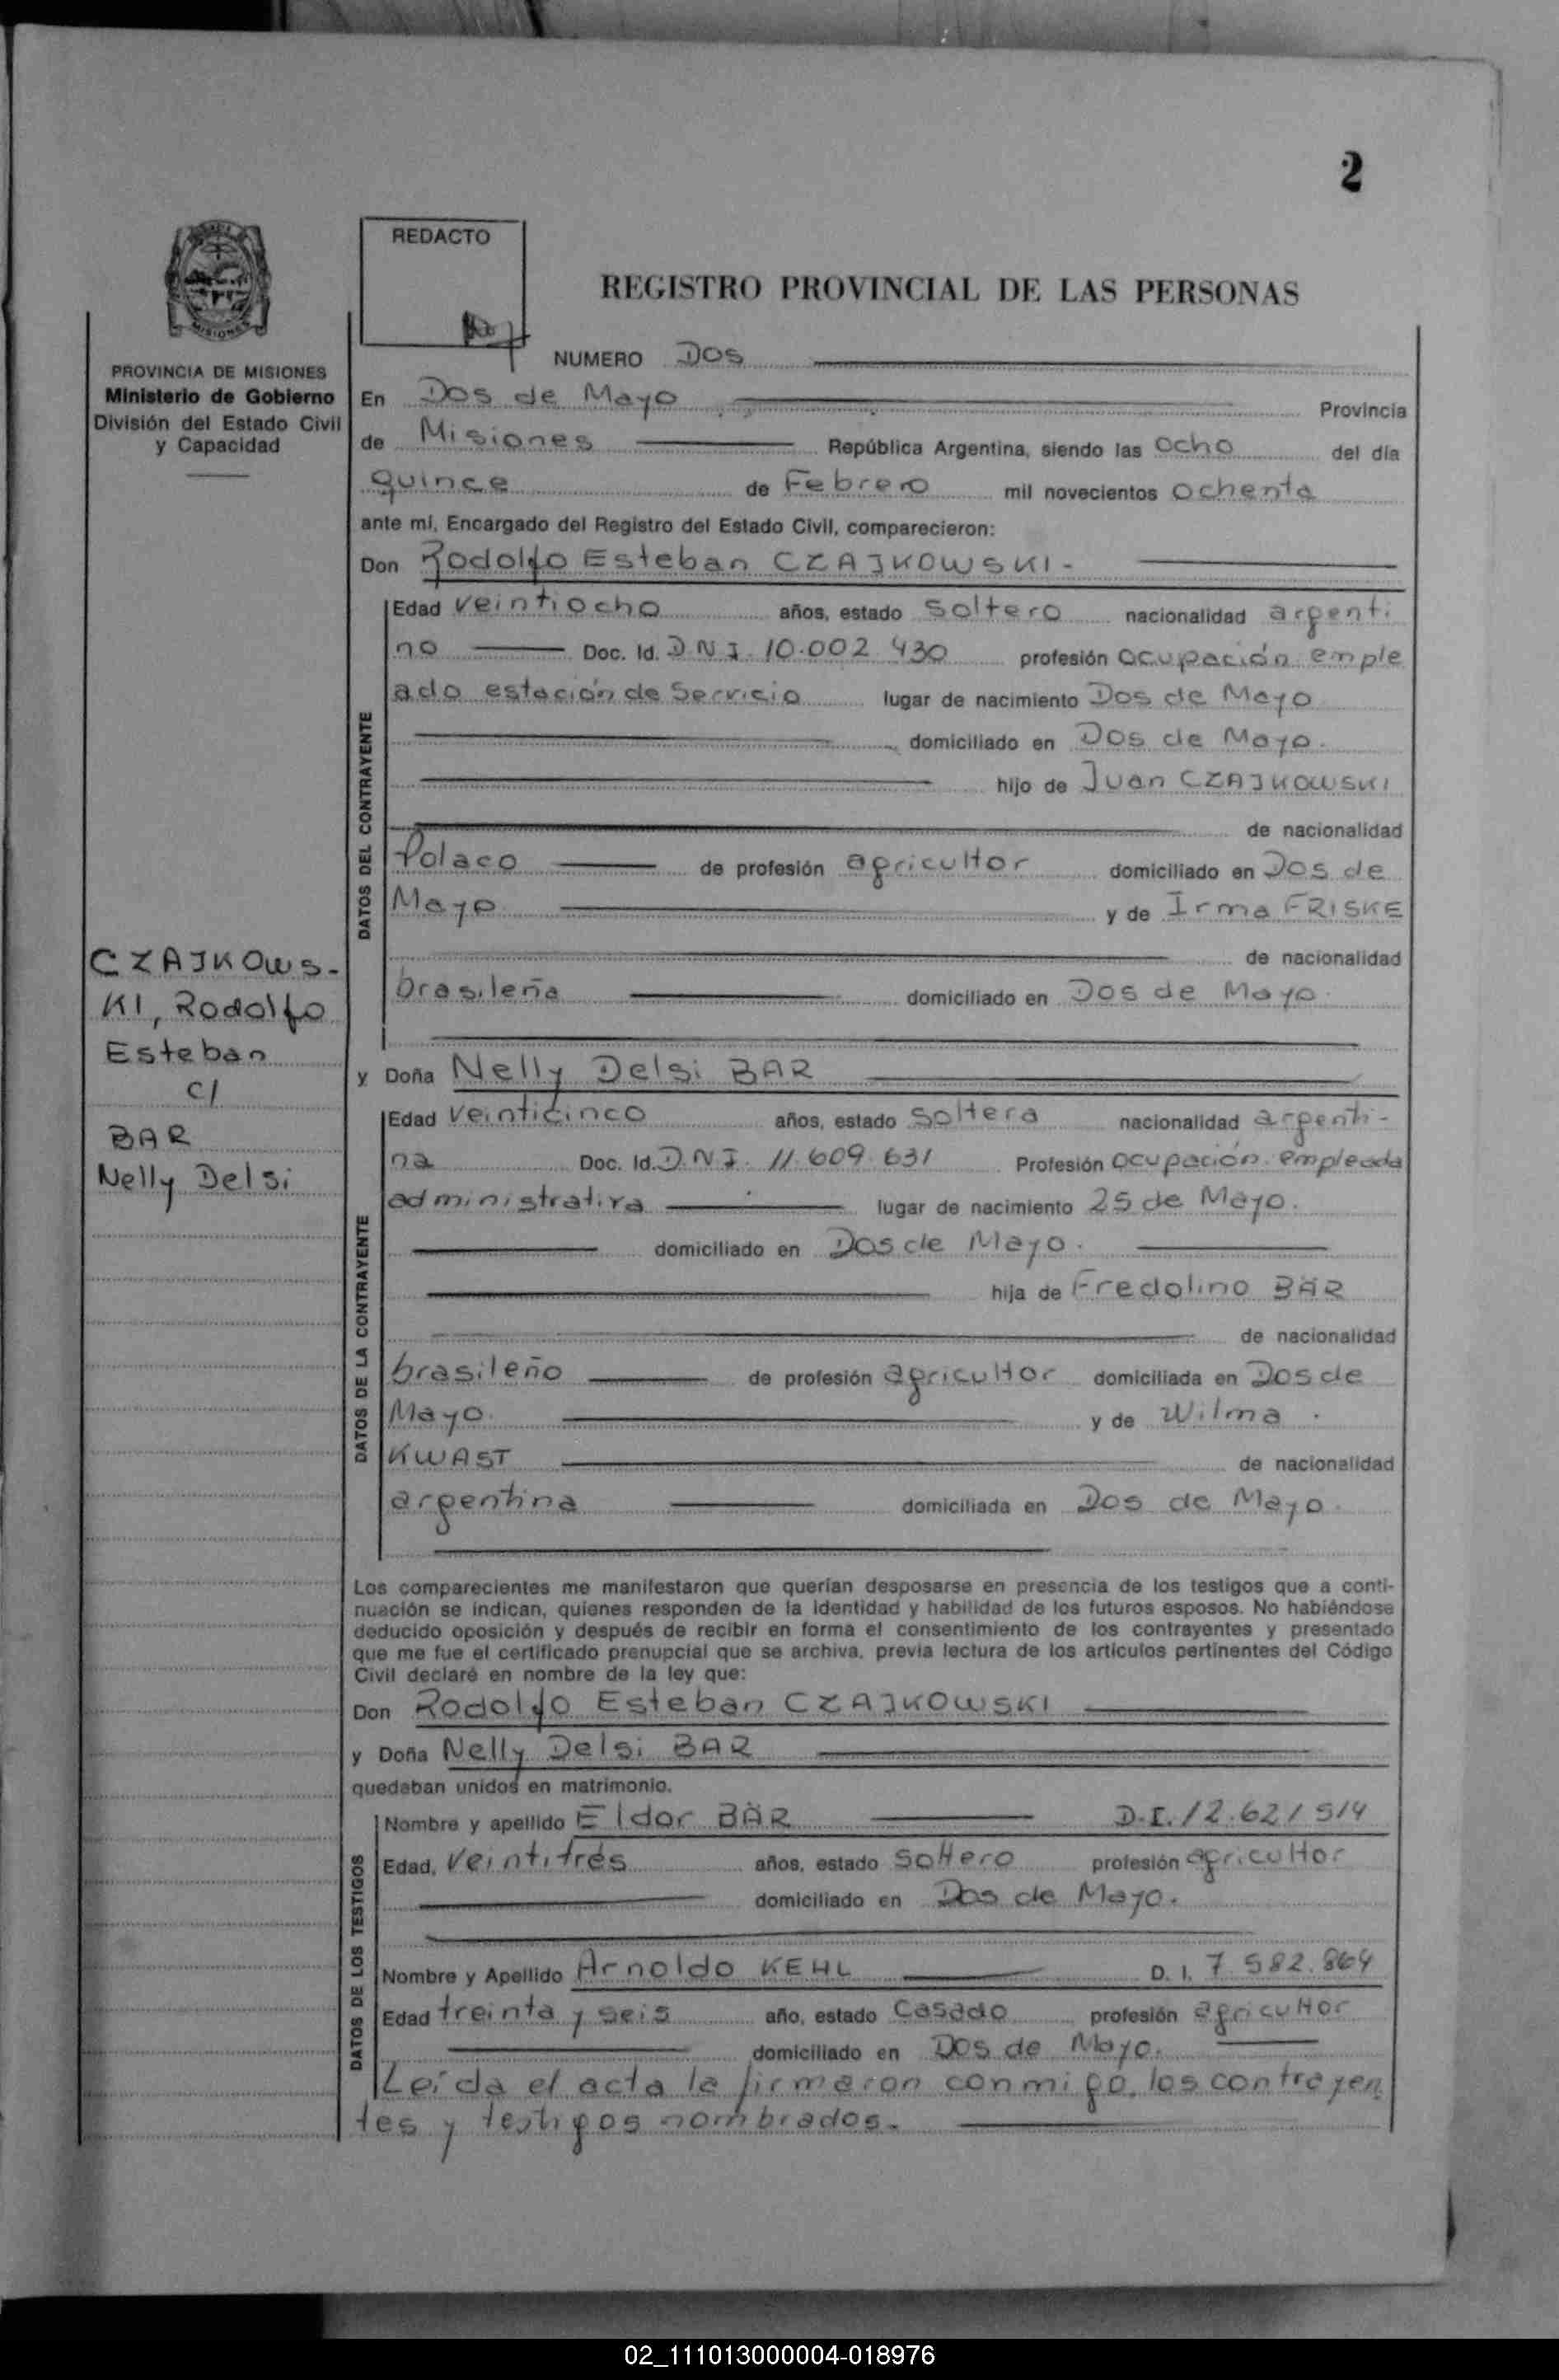 2
REDACTO
REGISTRO PROVINCIAL DE LAS PERSONAS
MISIONES
PROVINCIA DE MISIONES
Ministerio de Gobierno
División del Estado Civil
y Capacidad
NUMERO Dos
En Dos de Mayo Provincia
de Misiones República Argentina, siendo las ocho del día
quince de Febrero mil novecientos ochenta
ante mí, Encargado del Registro del Estado Civil, comparecieron:
Don Rodolfo Esteban CZAJKOWSKI.-
DATOS DEL CONTRAYENTE
Edad veintiocho años, estado soltero nacionalidad argenti
no Doc. Id. D.N.I. 10.002.430 profesión ocupación emple
ado estación de Servicio lugar de nacimiento Dos de Mayo
domiciliado en Dos de Mayo.
hijo de Juan CZAJKOWSKI
de nacionalidad
Polaco de profesión agricultor domiciliado en Dos de
Mayo y de Irma FRISKE
de nacionalidad
brasileña domiciliado en Dos de Mayo.
CZAJKOWS-
KI, Rodolfo
Esteban
c/
BAR
Nelly Delsi
y Doña Nelly Delsi BAR
DATOS DE LA CONTRAYENTE
Edad veinticinco años, estado soltera nacionalidad argenti-
na Doc. Id. D.N.I. 11.609.631 Profesión ocupación empleada
administrativa lugar de nacimiento 25 de Mayo.
domiciliado en Dos de Mayo.
hija de Fredolino BÄR
de nacionalidad
brasileño de profesión agricultor domiciliada en Dos de
Mayo. y de Wilma
KWAST de nacionalidad
argentina domiciliada en Dos de Mayo.
Los comparecientes me manifestaron que querían desposarse en presencia de los testigos que a conti-
nuación se indican, quienes responden de la identidad y habilidad de los futuros esposos. No habiéndose
deducido oposición y después de recibir en forma el consentimiento de los contrayentes y presentado
que me fue el certificado prenupcial que se archiva, previa lectura de los artículos pertinentes del Código
Civil declaré en nombre de la ley que:
Don Rodolfo Esteban CZAJKOWSKI
y Doña Nelly Delsi BAR
quedaban unidos en matrimonio.
DATOS DE LOS TESTIGOS
Nombre y apellido Eldor BÄR D.I. 12.621.514
Edad, veintitrés años, estado soltero profesión agricultor
domiciliado en Dos de Mayo.
Nombre y Apellido Arnoldo KEHL D. I. 7.582.864
Edad treinta y seis año, estado casado profesión agricultor
domiciliado en Dos de Mayo.
Leída el acta la firmaron conmigo, los contrayen
tes y testigos nombrados.-
02_111013000004-018976